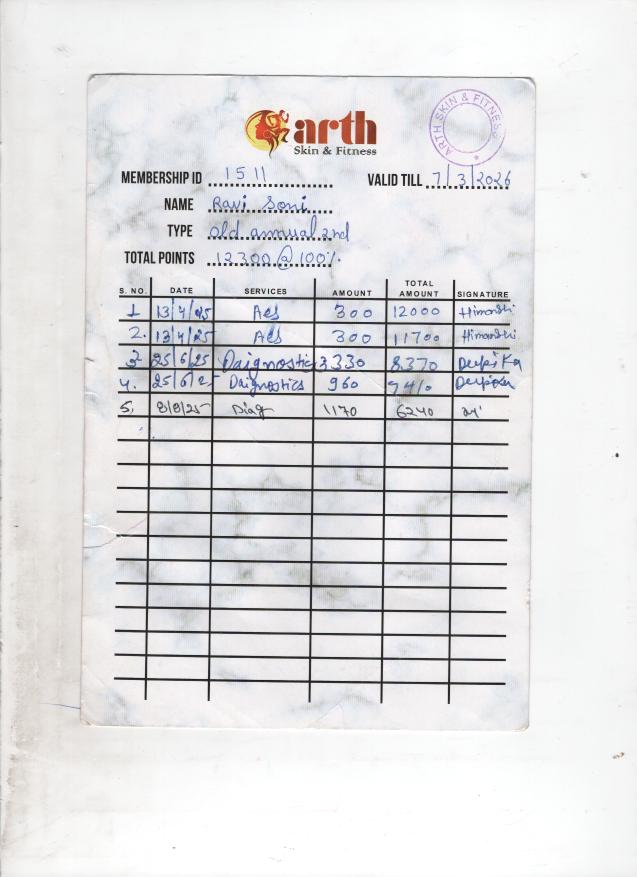 arth
Skin & Fitness
ARTH SKIN & FITNESS
MEMBERSHIP ID 1511 VALID TILL 7/3/2026
NAME Ravi Soni
TYPE Old annual 2nd
TOTAL POINTS 12300 @ 100%
S. NO. DATE SERVICES AMOUNT TOTAL AMOUNT SIGNATURE
1 13/4/25 Aes 300 12000 Himanshi
2. 13/4/25 Aes 300 11700 Himanshi
3 25/6/25 Daignostic 3330 8370 Deepika
4. 25/6/25 Daignostics 960 7410
5, 8/8/25 Diag 1170 6240